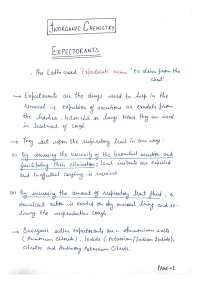 INORGANIC CHEMISTRY
EXPECTORANTS
- The Latin word 'Expectorate' means 'to drive from the
chest'.
→ Expectorants are the drugs used to help in the
removal i.e. expulsion of secretions or exudate from
the trachea, bronchi or lungs. Hence they are used
in treatment of cough
→ They act upon the respiratory tract in two ways:
(i) By decreasing the viscosity of the bronchial secretion and
facilitating their elimination: irritants are expelled
and ineffectual coughing is
(ii) By increasing the amount of respiratory tract fluid, a
demulcent action is exerted on dry mucosal lining and re-
lieving the unproductive cough.
→ Inorganic saline expectorants are - Ammonium salts
(Ammonium chloride), Iodide (Potassium/Sodium Iodide),
Citrates and Antimony Potassium Citrate.
PAGE-1